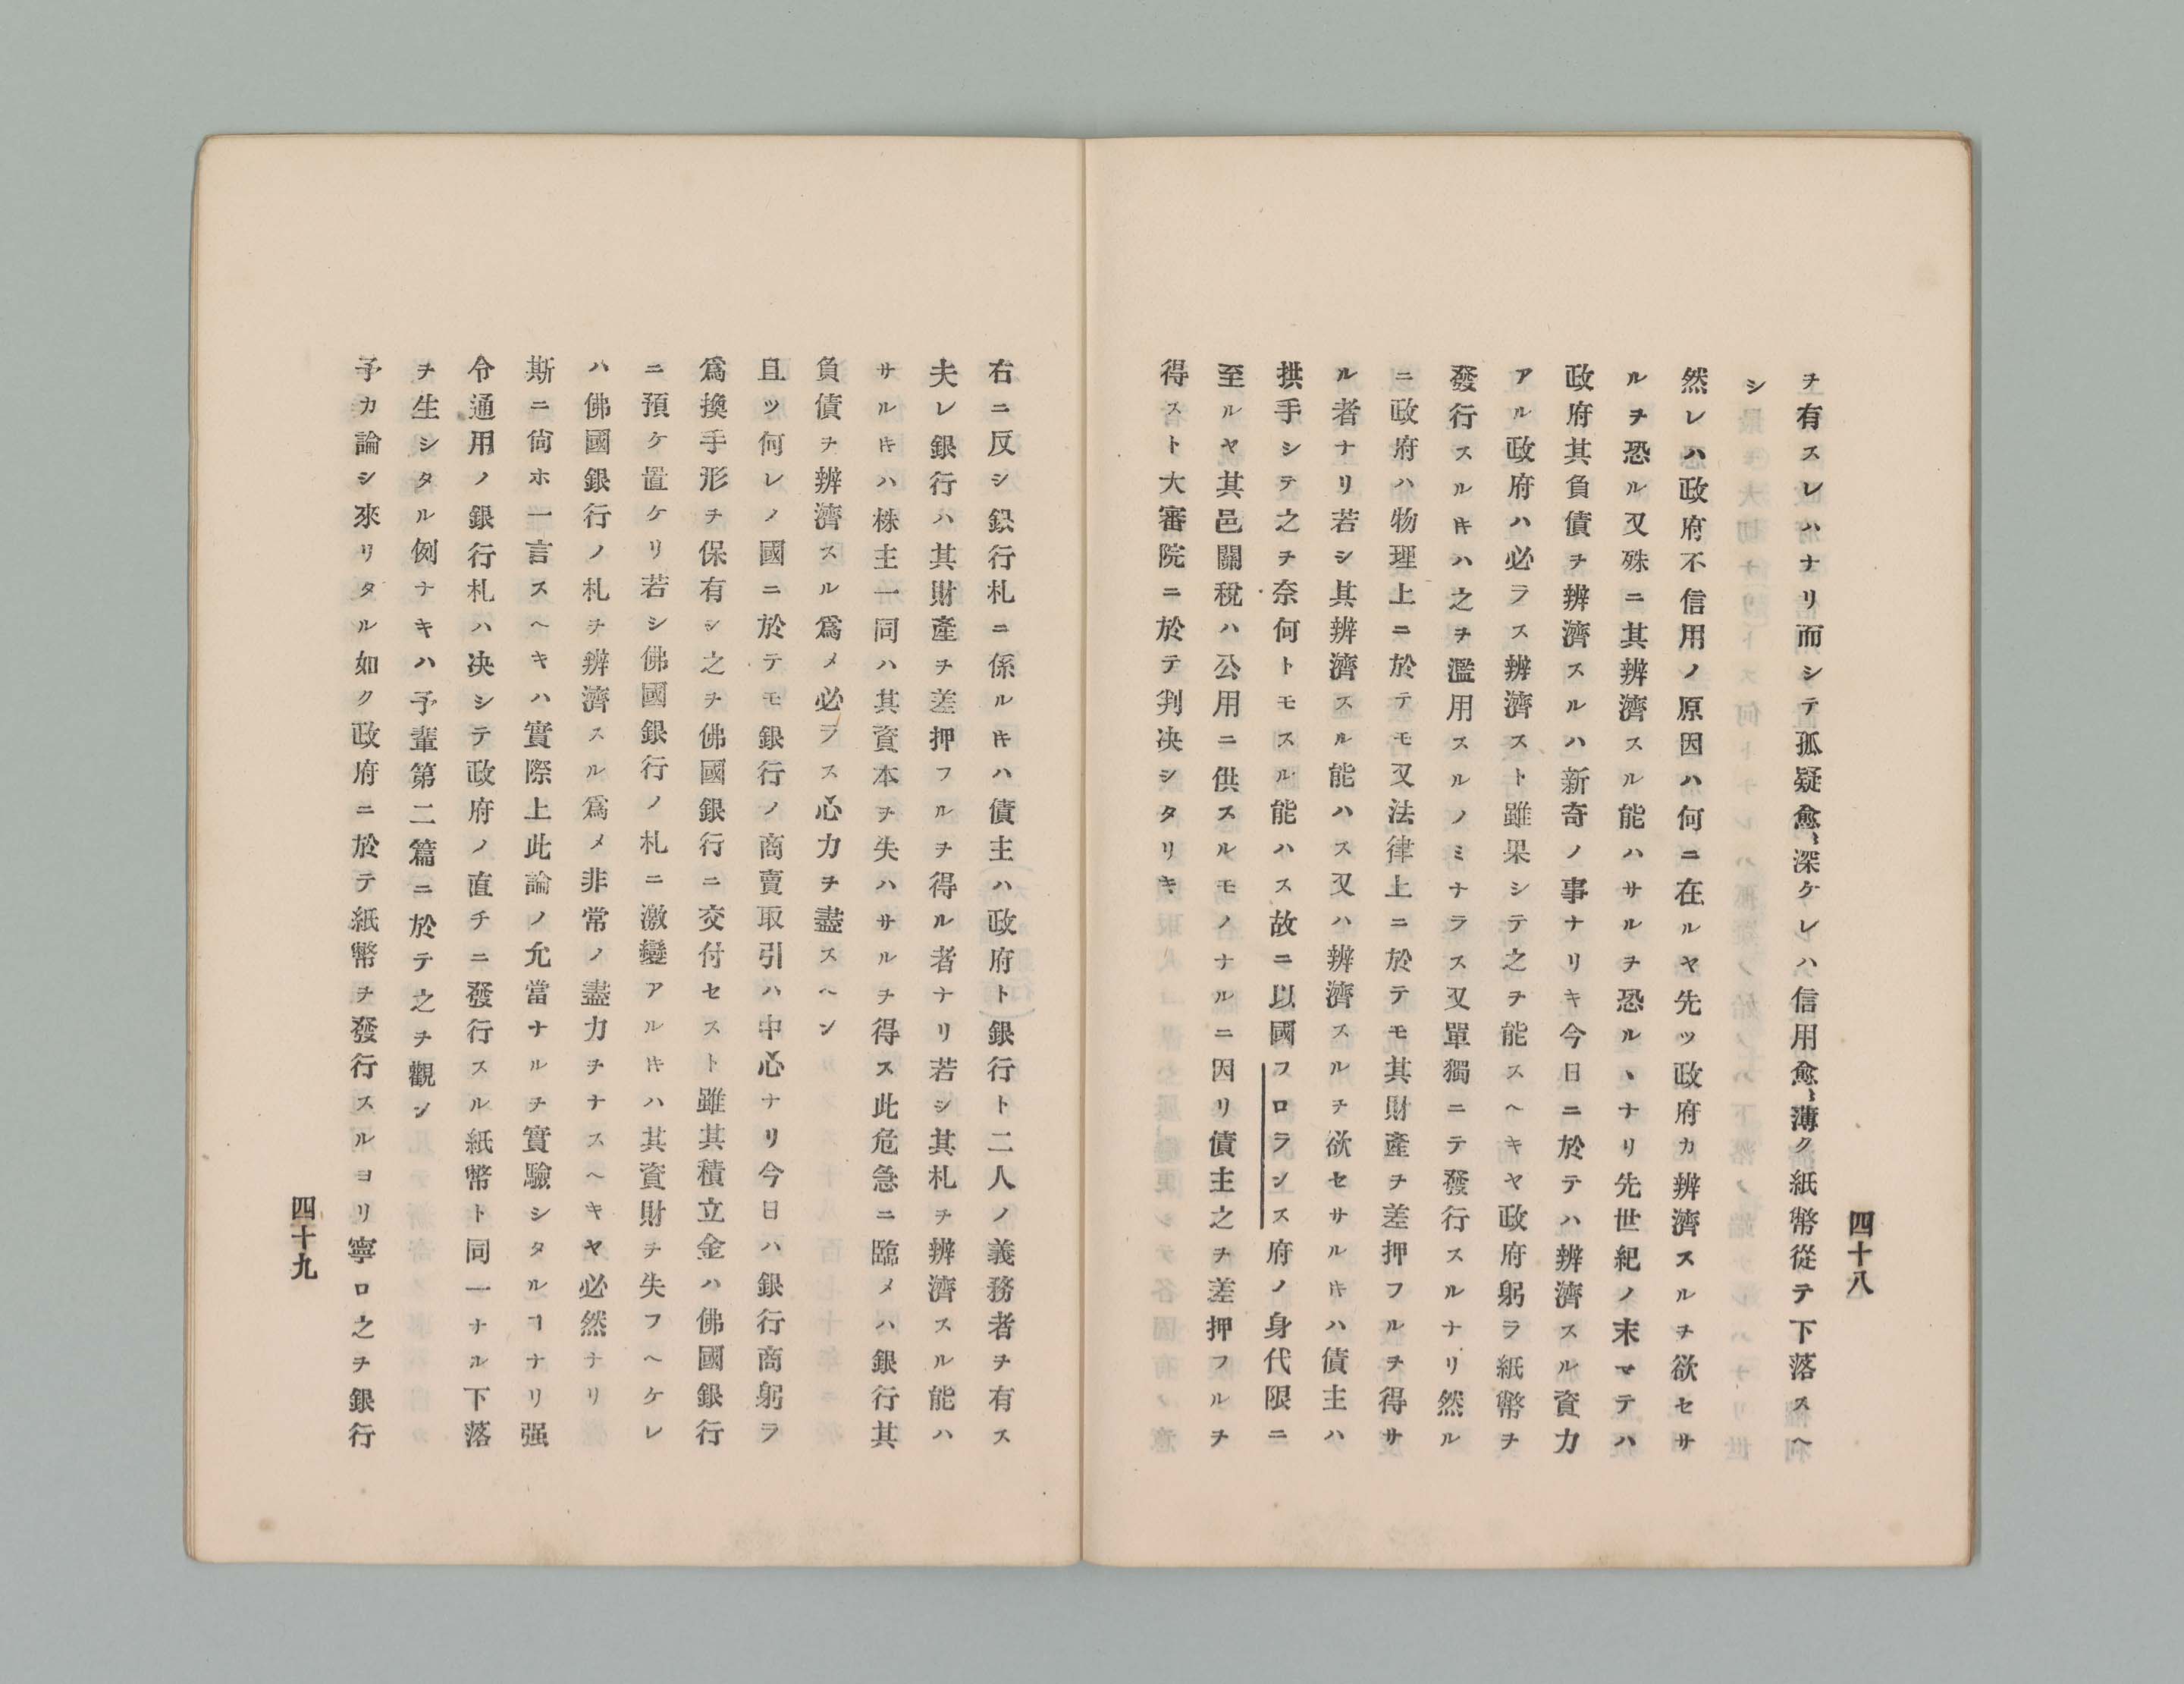 四十八
ヲ有スレハナリ而シテ孤疑愈〻深ケレハ信用愈〻薄ク紙幣從テ下落スヘ
シ
然レハ政府不信用ノ原因ハ何ニ在ルヤ先ツ政府カ辨濟スルヲ欲セサ
ルヲ恐ル又殊ニ其辨濟スル能ハサルヲ恐ルヽナリ先世紀ノ末マテハ
政府其負債ヲ辨濟スルハ新奇ノ事ナリキ今日ニ於テハ辨濟スル資力
アル政府ハ必ラス辨濟スト雖果シテ之ヲ能スヘキヤ政府躬ラ紙幣ヲ
發行スルキハ之ヲ濫用スルノミナラス又單獨ニテ發行スルナリ然ル
ニ政府ハ物理上ニ於テモ又法律上ニ於テモ其財產ヲ差押フルヲ得サ
ル者ナリ若シ其辨濟スル能ハス又ハ辨濟スルヲ欲セサルキハ債主ハ
拱手シテ之ヲ奈何トモスル能ハス故ニ以國フロランシス府ノ身代限ニ
至ルヤ其邑關稅ハ公用ニ供スルモノナルニ因リ債主之ヲ差押フルヲ
得スト大審院ニ於テ判决シタリキ
右ニ反シ銀行札ニ係ルキハ債主ハ政府ト銀行ト二人ノ義務者ヲ有ス
夫レ銀行ハ其財產ヲ差押フルヲ得ル者ナリ若シ其札ヲ辨濟スル能ハ
サルキハ株主一同ハ其資本ヲ失ハサルヲ得ス此危急ニ臨メハ銀行其
負債ヲ辨濟スル爲メ必ラス心力ヲ盡スヘシ
且ツ何レノ國ニ於テモ銀行ノ商賣取引ハ中心ナリ今日ハ銀行商躬ラ
爲換手形ヲ保有シ之ヲ佛國銀行ニ交付セスト雖其積立金ハ佛國銀行
ニ預ケ置ケリ若シ佛國銀行ノ札ニ激變アルキハ其資財ヲ失フヘケレ
ハ佛國銀行ノ札ヲ辨濟スル爲メ非常ノ盡力ヲナスヘキヤ必然ナリ
斯ニ尙ホ一言スヘキハ實際上此論ノ允當ナルヲ實驗シタルヿナリ强
令通用ノ銀行札ハ决シテ政府ノ直チニ發行スル紙幣ト同一ナル下落
ヲ生シタル例ナキハ予輩第二篇ニ於テ之ヲ觀ン
予カ論シ來リタル如ク政府ニ於テ紙幣ヲ發行スルヨリ寧ロ之ヲ銀行
四十九